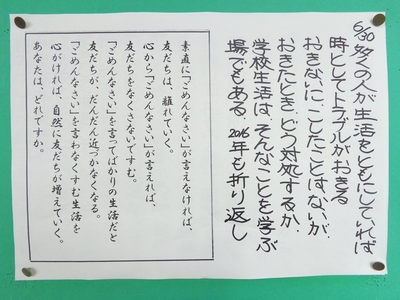 6/30 多くの人が生活をともにしていれば
時としてトラブルがおきる
おきないに、こしたことはないが、
おきたとき、どう対処するか、
学校生活は、そんなことを学ぶ
場でもある、2016年も折り返し
素直に「ごめんなさい」が言えなければ、
友だちは、離れていく。
心から「ごめんなさい」が言えれば、
友だちをなくさないですむ。
「ごめんなさい」を言ってばかりの生活だと
友だちが、だんだん近づかなくなる。
「ごめんなさい」を言わなくすむ生活を
心がければ、自然に友だちが増えていく。
あなたは、どれですか。